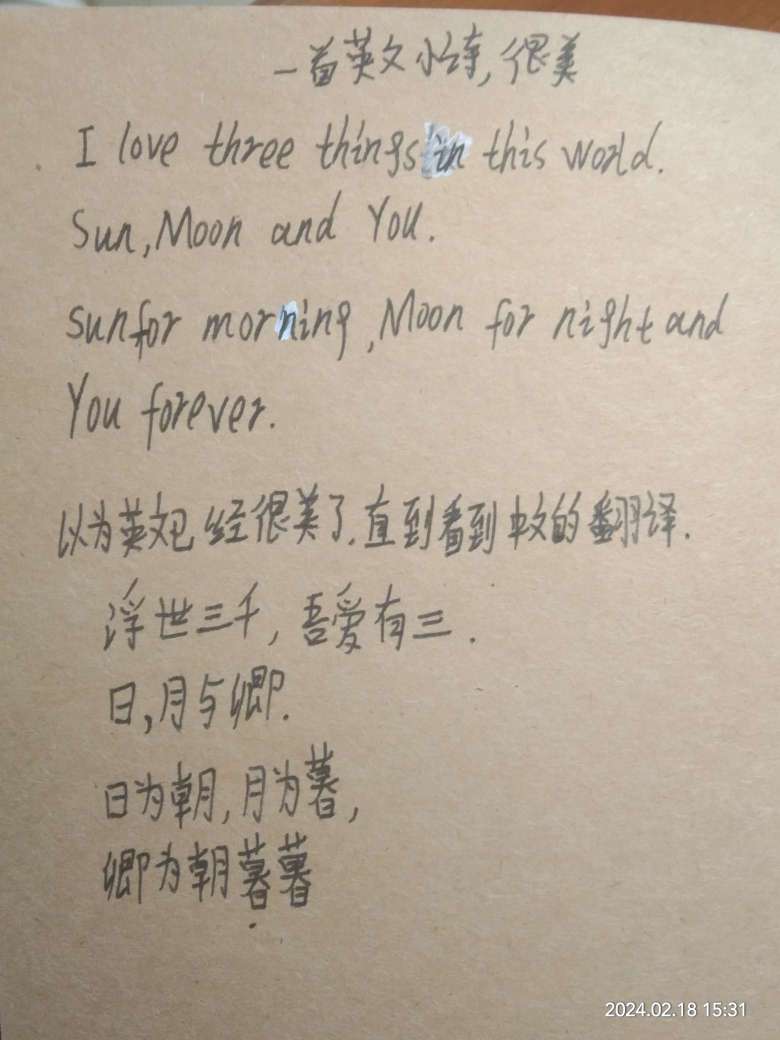 一首英文小诗,很美
I love three things in this world.
Sun,Moon and You.
Sun for morning,Moon for night and
You forever.
以为英文已经很美了.直到看到中文的翻译.
浮世三千,吾爱有三.
日,月与卿.
日为朝,月为暮,
卿为朝暮暮
2024.02.18 15:31